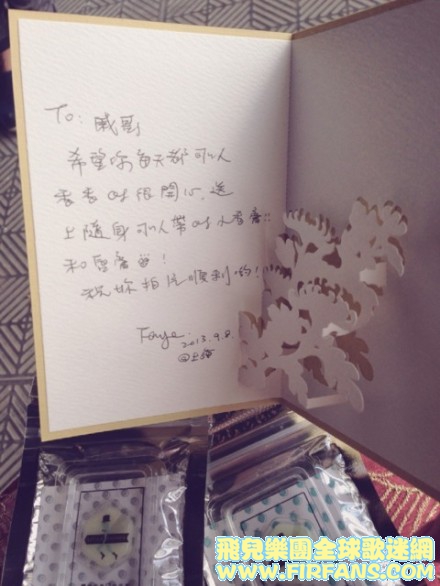 To: 戚戚
希望你每天都可以
香香 的 很開心, 送
上隨身可以帶的小香膏!!
和唇膏
祝妳拍片順利的!
Faye.
2013.9.8.
@上海
飛兒樂團全球歌迷網
WWW.FIRFANS.COM